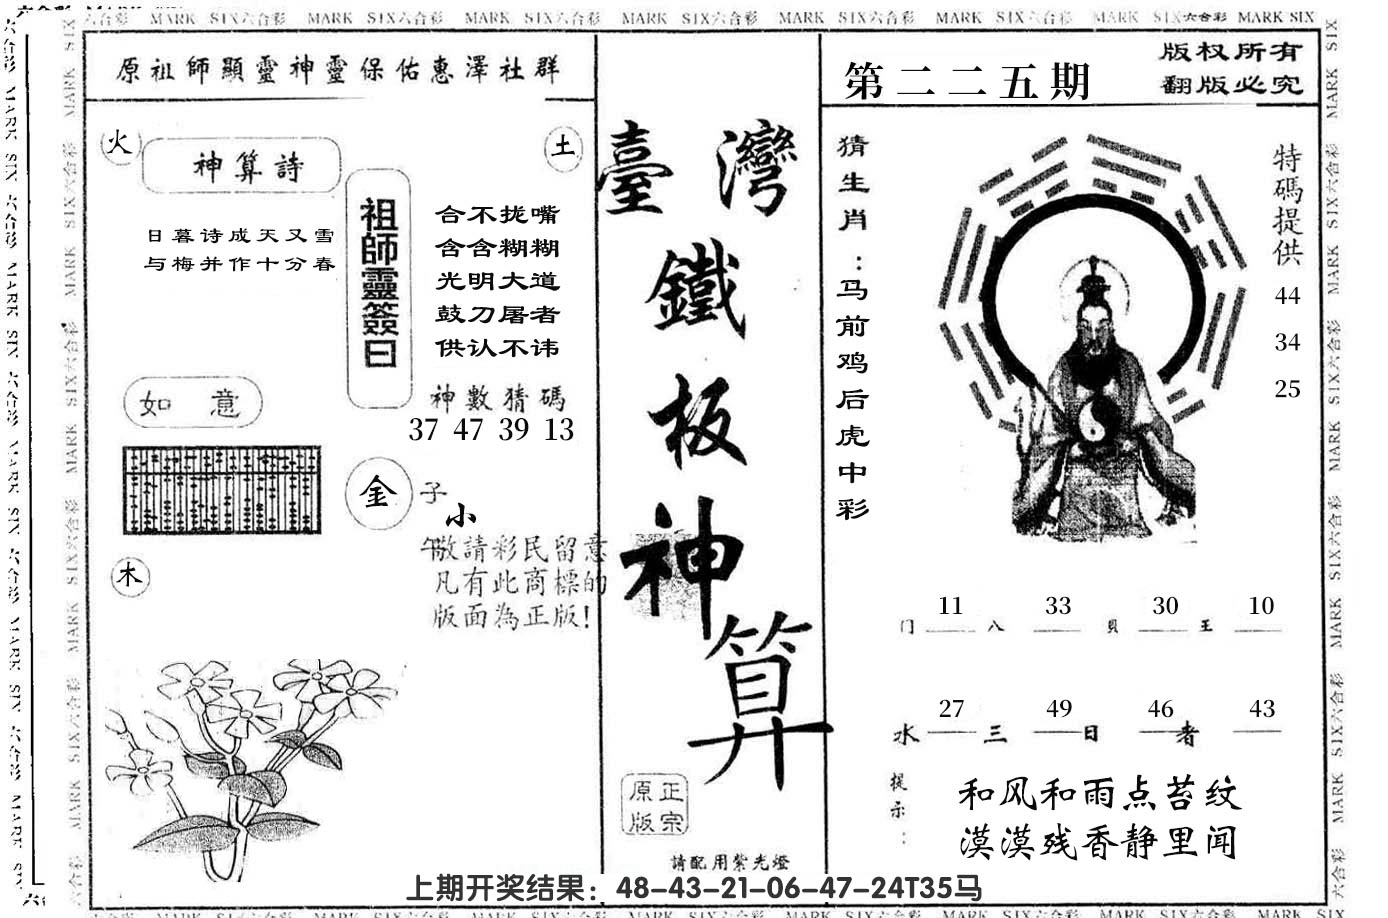 MARK SIX六合彩 MARK SIX六合彩 MARK SIX六合彩 MARK SIX六合彩 MARK SIX六合彩 MARK SIX六合彩 MARK SIX六合彩 MARK SIX
原祖師顯靈神靈保佑惠澤社群
火
土
神算詩
日暮诗成天又雪
与梅并作十分春
祖師靈簽曰
合不拢嘴
含含糊糊
光明大道
鼓刀屠者
供认不讳
如 意
神數猜碼
37 47 39 13
金
子
小
午
敬請彩民留意
凡有此商標的
版面為正版!
木
臺灣
鐵
板
神
算
原正
版宗
請配用紫光燈
第二二五期
版权所有
翻版必究
猜生肖：马前鸡后虎中彩
特碼提供
44
34
25
门 11 八 33 貝 30 王 10
水 27 三 49 日 46 者 43
提示：
和风和雨点苔纹
漠漠残香静里闻
上期开奖结果：48-43-21-06-47-24T35马